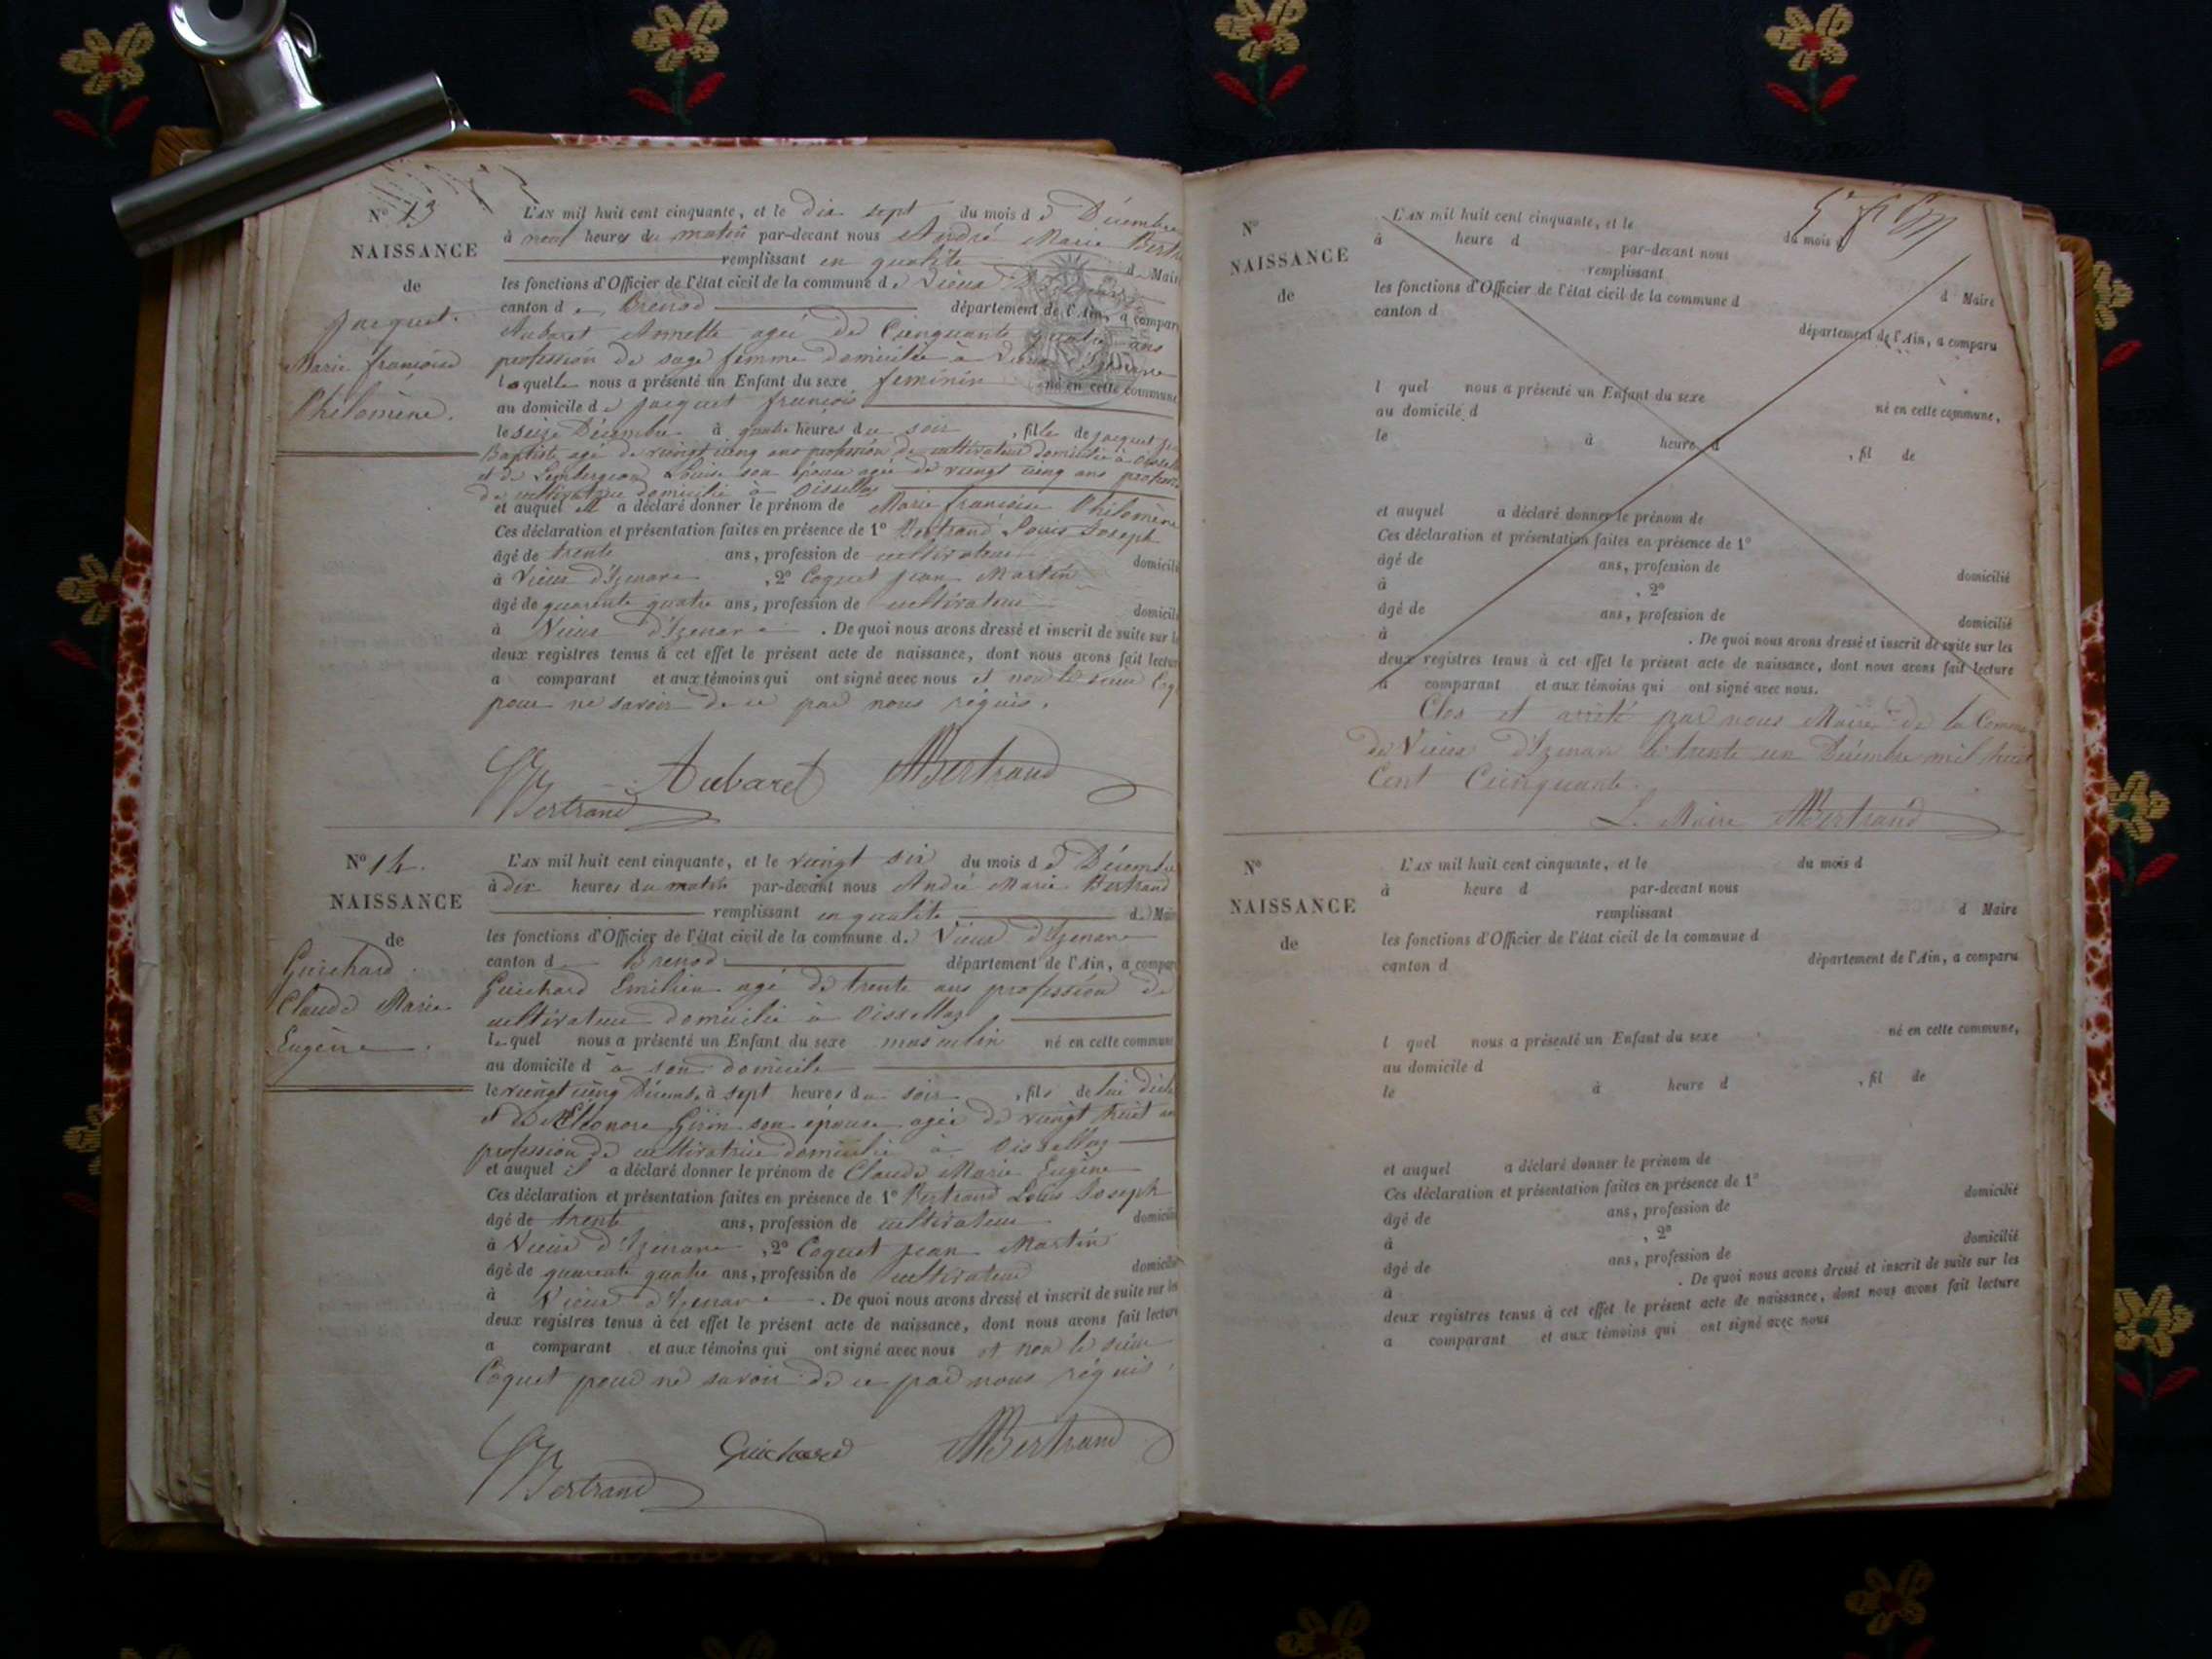 N° 13
NAISSANCE
de
Jacquet
Marie françoise
Philomène.
L'AN mil huit cent cinquante, et le dix sept du mois d e Décembre
à neuf heures du matin par-devant nous André Marie Bertr
remplissant en qualité de Mair
les fonctions d'Officier de l'état civil de la commune de Vieux
canton de Brenod département de l'Ain, a compar
Aubaret Annette agée de Cinquante quatre ans
profession de sage femme domiciliée à Vieux d'Izenave
laquelle nous a présenté un Enfant du sexe feminin né en cette commune
au domicile de Jacquet françois
le seize Décembre à quatre heures du soir , fille de Jacquet
Baptiste agé de vingt cinq ans profession de cultivateur domicilié à
et de Louise son épouse agée de vingt cinq ans profession
de cultivatrice domicilié à Oissellaz
et auquel elle a déclaré donner le prénom de Marie francoise Philomène
Ces déclaration et présentation faites en présence de 1° Bertrand Louis Joseph
âgé de trente ans, profession de cultivateur domicili
à Vieux d'Izenave , 2° Coquet Jean Martin
âgé de quarente quatre ans, profession de cultivateur domicili
à Vieux d'Izenave . De quoi nous avons dressé et inscrit de suite sur le
deux registres tenus à cet effet le présent acte de naissance, dont nous avons fait lectur
a comparant et aux témoins qui ont signé avec nous et non le sieur Coq
pour ne savoir de ce par nous réquis.
Bertrand Aubaret AMBertrand
N° 14.
NAISSANCE
de
Guichard
Claude Marie
Eugène.
L'AN mil huit cent cinquante, et le vingt six du mois d e Décembre
à dix heures du matin par-devant nous André Marie Bertrand
remplissant en qualité de Mair
les fonctions d'Officier de l'état civil de la commune de Vieux d'Izenave
canton d Brenod département de l'Ain, a compar
Guichard Emilien agé de trente ans profession de
cultivateur domicilié à Oissellaz
lequel nous a présenté un Enfant du sexe masculin né en cette commune
au domicile d à son domicile
le vingt cinq Décemb. à sept heures du soir , fils de lui
et de Eléonore Girin son épouse agée de vingt huit an
profession de cultivatrice domicilié à Oissellaz
et auquel il a déclaré donner le prénom de Claude Marie Eugène
Ces déclaration et présentation faites en présence de 1° Bertrand Louis Joseph
âgé de trente ans, profession de cultivateur domicilié
à Vieux d'Izenave , 2° Coquet Jean Martin
âgé de quarente quatre ans, profession de cultivateur domicilié
à Vieux d'Izenave . De quoi nous avons dressé et inscrit de suite sur les
deux registres tenus à cet effet le présent acte de naissance, dont nous avons fait lectur
a comparant et aux témoins qui ont signé avec nous et non le sieur
Coquet pour ne savoir de ce par nous réquis.
Bertrand Guichard AMBertrand
N°
NAISSANCE
de
L'AN mil huit cent cinquante, et le du mois d
à heure d par-devant nous
remplissant d Maire
les fonctions d'Officier de l'état civil de la commune d
canton d département de l'Ain, a comparu
l quel nous a présenté un Enfant du sexe né en cette commune,
au domicile d
le à heure d , fil de
et auquel a déclaré donner le prénom de
Ces déclaration et présentation faites en présence de 1°
âgé de ans, profession de domicilié
à , 2°
âgé de ans, profession de domicilié
à . De quoi nous avons dressé et inscrit de suite sur les
deux registres tenus à cet effet le présent acte de naissance, dont nous avons fait lecture
a comparant et aux témoins qui ont signé avec nous.
Clos et arrêté par nous Maire de la Commune
de Vieux d'Izenave le trente un Décembre mil huit
Cent Cinquante.
Le Maire AMBertrand
N°
NAISSANCE
de
L'AN mil huit cent cinquante, et le du mois d
à heure d par-devant nous
remplissant d Maire
les fonctions d'Officier de l'état civil de la commune d
canton d département de l'Ain, a comparu
l quel nous a présenté un Enfant du sexe né en cette commune,
au domicile d
le à heure d , fil de
et auquel a déclaré donner le prénom de
Ces déclaration et présentation faites en présence de 1°
âgé de ans, profession de domicilié
à , 2°
âgé de ans, profession de domicilié
à . De quoi nous avons dressé et inscrit de suite sur les
deux registres tenus à cet effet le présent acte de naissance, dont nous avons fait lecture
a comparant et aux témoins qui ont signé avec nous